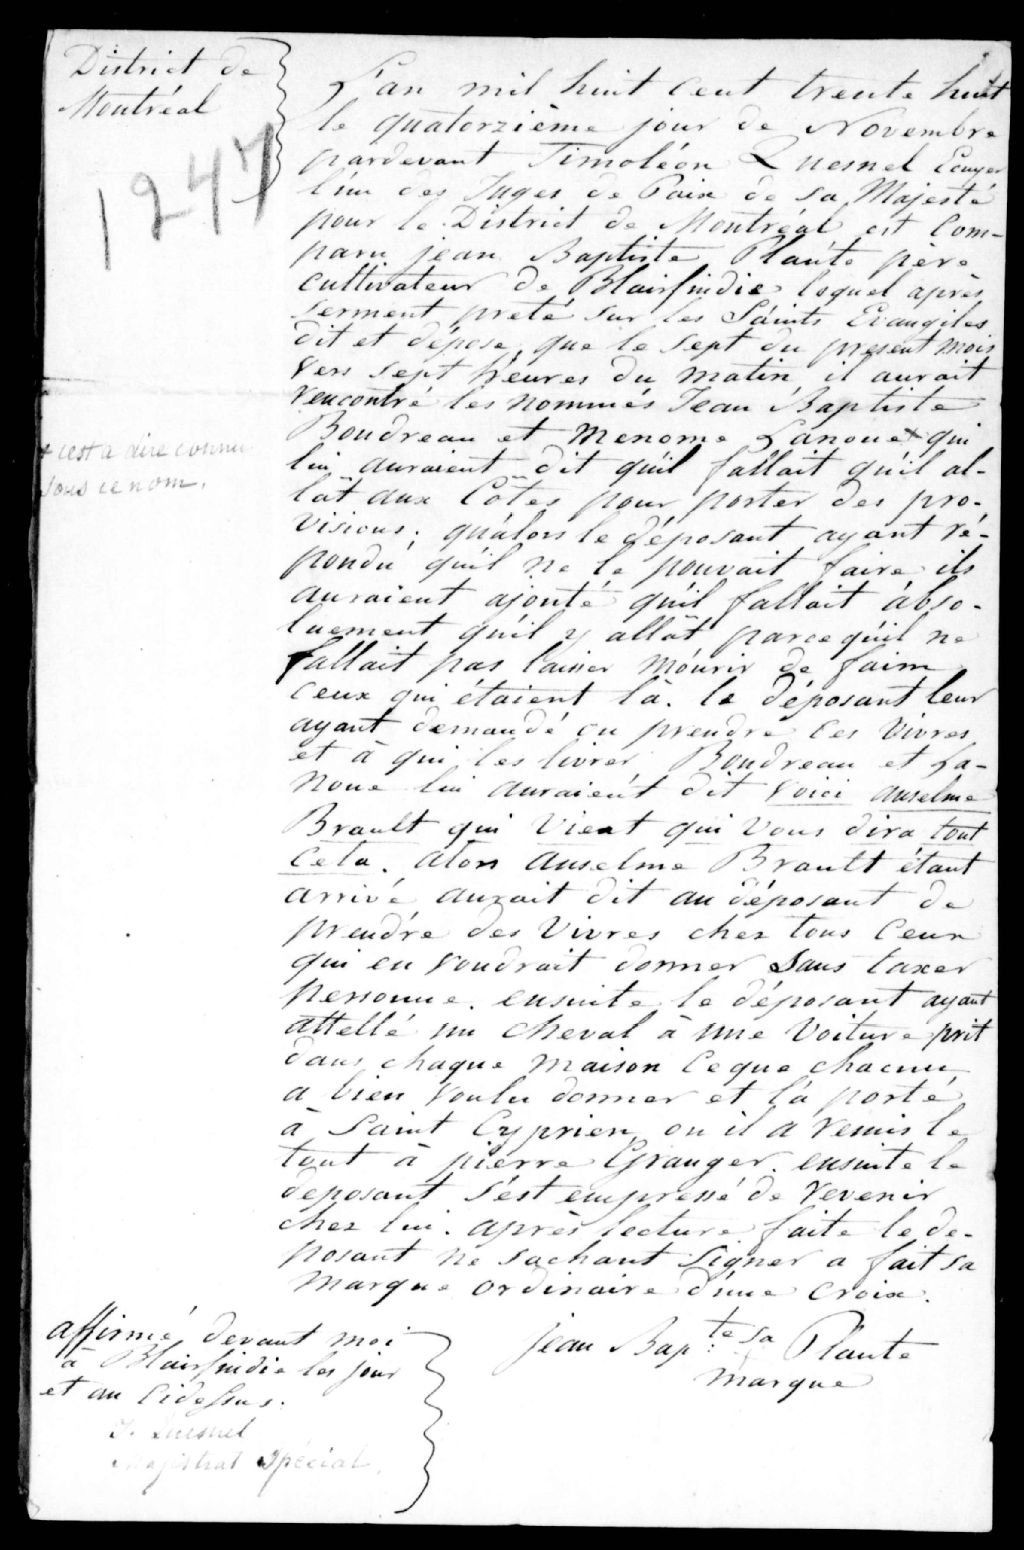 District de
Montréal
1247
L'an mil huit cent trente huit
le quatorzième jour de Novembre
pardevant Timoléon Quesnel Ecuyer
l'un des Juges de Paix de sa Majesté
pour le District de Montréal est Com-
paru jean Baptiste Plante père
cultivateur de Blairfindie lequel après
serment preté sur les Saints Evangiles
dit et dépose que le sept du present mois
vers sept heures du matin il aurait
rencontré les nommés Jean Baptiste
Boudreau et Menome Lanoue + qui
lui auraient dit qu'il fallait qu'il al-
lât aux Côtes pour porter des pro-
visions; qu'alors le déposant ayant ré-
pondu qu'il ne le pouvait faire ils
auraient ajouté qu'il fallait abso-
luement qu'il y allât parcequ'il ne
fallait pas laisser mourir de faim
ceux qui étaient là. le déposant leur
ayant demandé ou prendre ces vivres
et à qui les livrer Boudreau et La-
noue lui auraient dit voici anselme
Brault qui vient qui vous dira tout
cela. alors anselme Brault étant
arrivé aurait dit au déposant de
prendre des vivres chez tous ceux
qui en voudrait donner sans taxer
personne. ensuite le déposant ayant
attellé un cheval à une voiture prit
dans chaque maison ceque chacun
a bien voulu donner et l'a porté
à Saint Cyprien ou il a remis le
tout à pierre Granger. ensuite le
deposant s'est empressé de revenir
chez lui. après lecture faite le de-
posant ne sachant signer a fait sa
marque ordinaire d'une croix.
+ cest a dire connu
sous ce nom.
jean Bap:te sa Plante
marque
affirmé devant moi
à Blairfindie les jour
et an cidessus.
T. Quesnel
Magistrat Spécial.